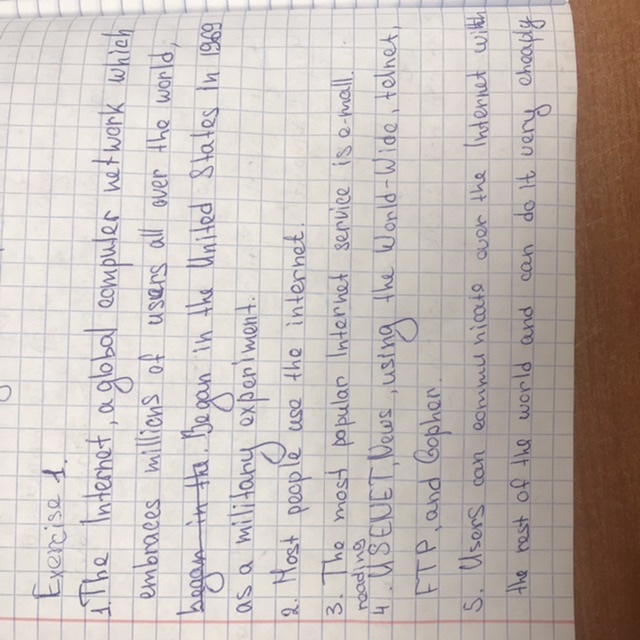 Exercise 1.
1. The Internet, a global computer network which
embraces millions of users all over the world,
began in the Began in the United States in 1969
as a military experiment.
2. Most people use the internet.
3. The most popular Internet service is e-mail.
reading
4. USENET News, using the World-Wide, telnet,
FTP, and Gopher.
5. Users can communicate over the Internet with
the rest of the world and can do it very cheaply